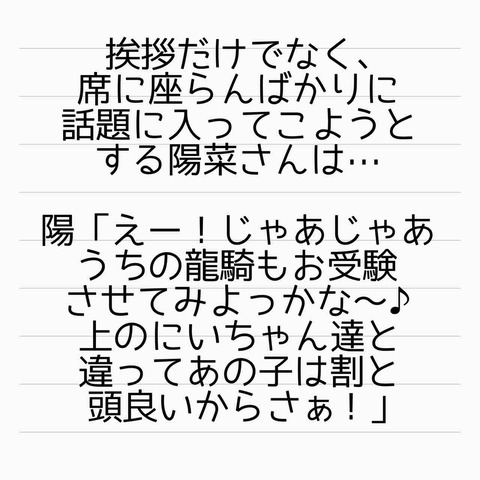 挨拶だけでなく、
席に座らんばかりに
話題に入ってこようと
する陽菜さんは…
陽「えー！じゃあじゃあ
うちの龍騎もお受験
させてみよっかな〜♪
上のにいちゃん達と
違ってあの子は割と
頭良いからさぁ！」